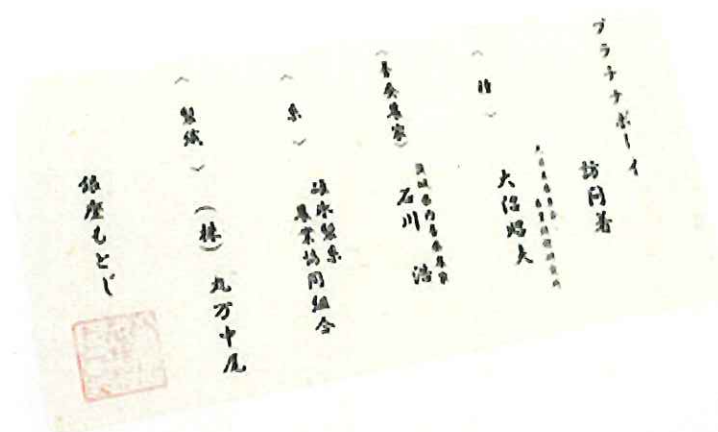 プラチナボーイ
訪問着
〈 〉
大沼昭夫
〈養蚕農家〉
茨城県内養蚕農家
石川 浩
〈糸〉
碓氷製糸
農業協同組合
〈製織〉
(株)丸万中尾
銀座もとじ